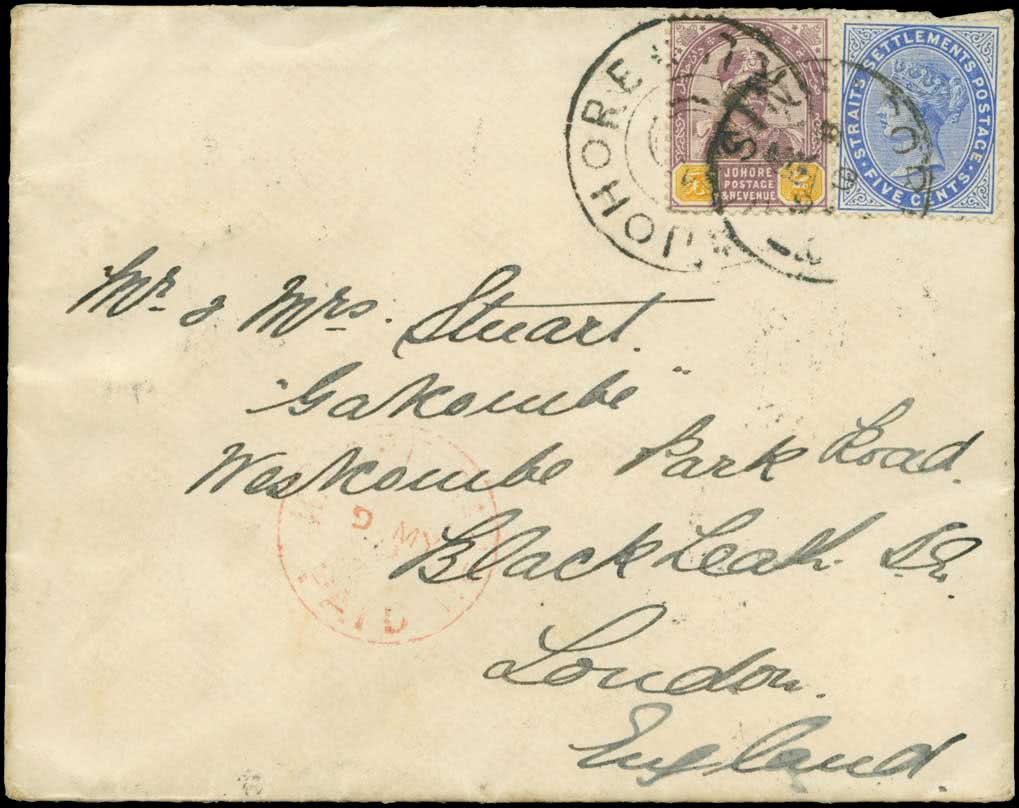 JOHORE
JOHORE
POSTAGE
& REVENUE
STRAITS SETTLEMENTS POSTAGE
FIVE CENTS
Mr & Mrs. Stuart.
"Gakombe"
Weskombe Park Road.
Blackheath. S.E.
London.
England.
9 MY
PAID